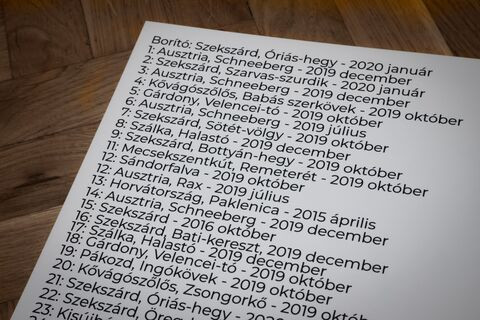 Borító: Szekszárd, Óriás-hegy - 2020 január
1: Ausztria, Schneeberg - 2019 december
2: Szekszárd, Szarvas-szurdik - 2020 január
3: Ausztria, Schneeberg - 2019 december
4: Kővágószőlős, Babás szerkövek - 2019 október
5: Gárdony, Velencei-tó - 2019 október
6: Ausztria, Schneeberg - 2019 július
7: Szekszárd, Sötét-völgy - 2019 október
8: Szálka, Halastó - 2019 december
9: Szekszárd, Bottyán-hegy - 2019 október
11: Mecsekszentkút, Remeterét - 2019 október
12: Sándorfalva - 2019 október
12: Ausztria, Rax - 2019 július
13: Horvátország, Paklenica - 2015 április
14: Ausztria, Schneeberg - 2019 december
15: Szekszárd - 2016 október
16: Szekszárd, Bati-kereszt, 2019 december
17: Szálka, Halastó - 2019 december
18: Gárdony, Velencei-tó - 2019 október
19: Pákozd, Ingókövek - 2019 október
20: Kővágószőlős, Zsongorkő - 2019 október
21: Szekszárd, Óriás-hegy - 2019 október
22: Szekszárd,
23: